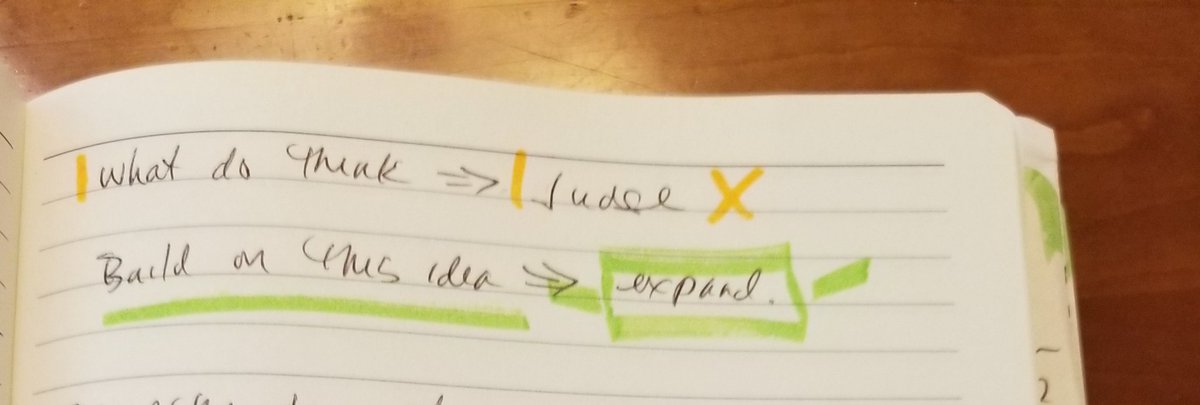 what do think => Judge X
Build on this idea => expand.
2